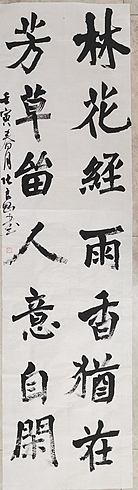 林花經雨香猶在
芳草留人意自閑
壬寅春月